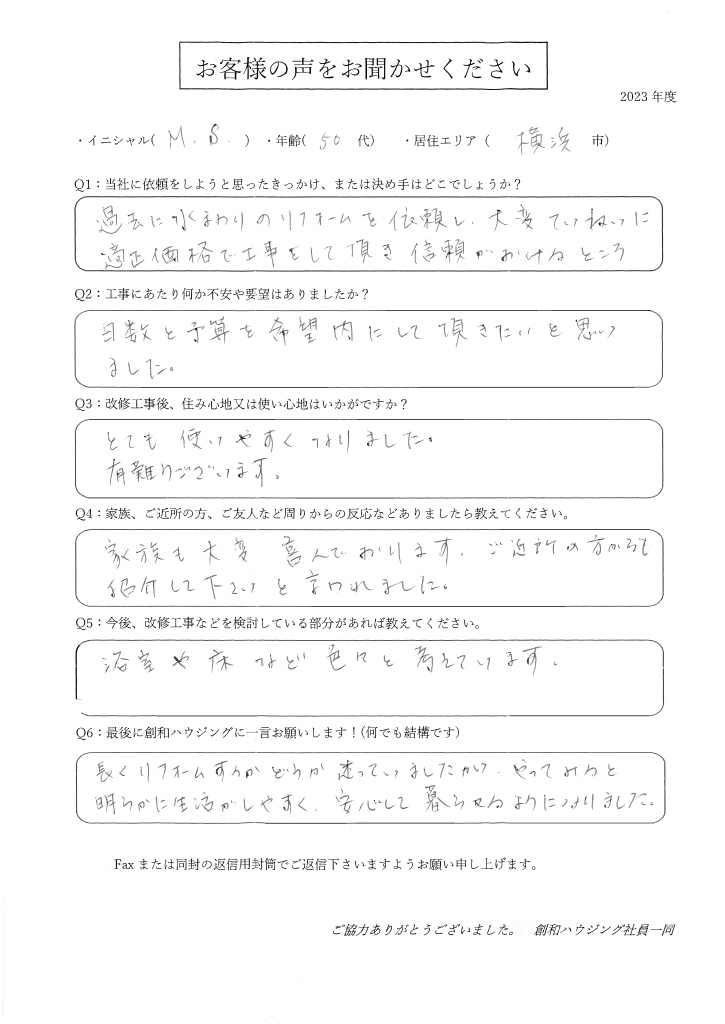 お客様の声をお聞かせください
2023 年度
・イニシャル( M. S. ) ・年齢( 50 代) ・居住エリア ( 横浜 市)
Q1：当社に依頼をしようと思ったきっかけ、または決め手はどこでしょうか？
過去に水まわりのリフォームを依頼し、大変ていねいに
適正価格で工事をして頂き信頼がおけるところ
Q2：工事にあたり何か不安や要望はありましたか？
日数と予算を希望内にして頂きたいと思い
ました。
Q3：改修工事後、住み心地又は使い心地はいかがですか？
とても使いやすくなりました。
有難うございます。
Q4：家族、ご近所の方、ご友人など周りからの反応などありましたら教えてください。
家族も大変喜んでおります。ご近所の方からも
紹介して下さいと言われました。
Q5：今後、改修工事などを検討している部分があれば教えてください。
浴室や床など色々と考えています。
Q6：最後に創和ハウジングに一言お願いします！(何でも結構です)
長くリフォームするかどうか迷っていましたが、やってみると
明らかに生活がしやすく、安心して暮らせるようになりました。
Fax または同封の返信用封筒でご返信下さいますようお願い申し上げます。
ご協力ありがとうございました。 創和ハウジング社員一同